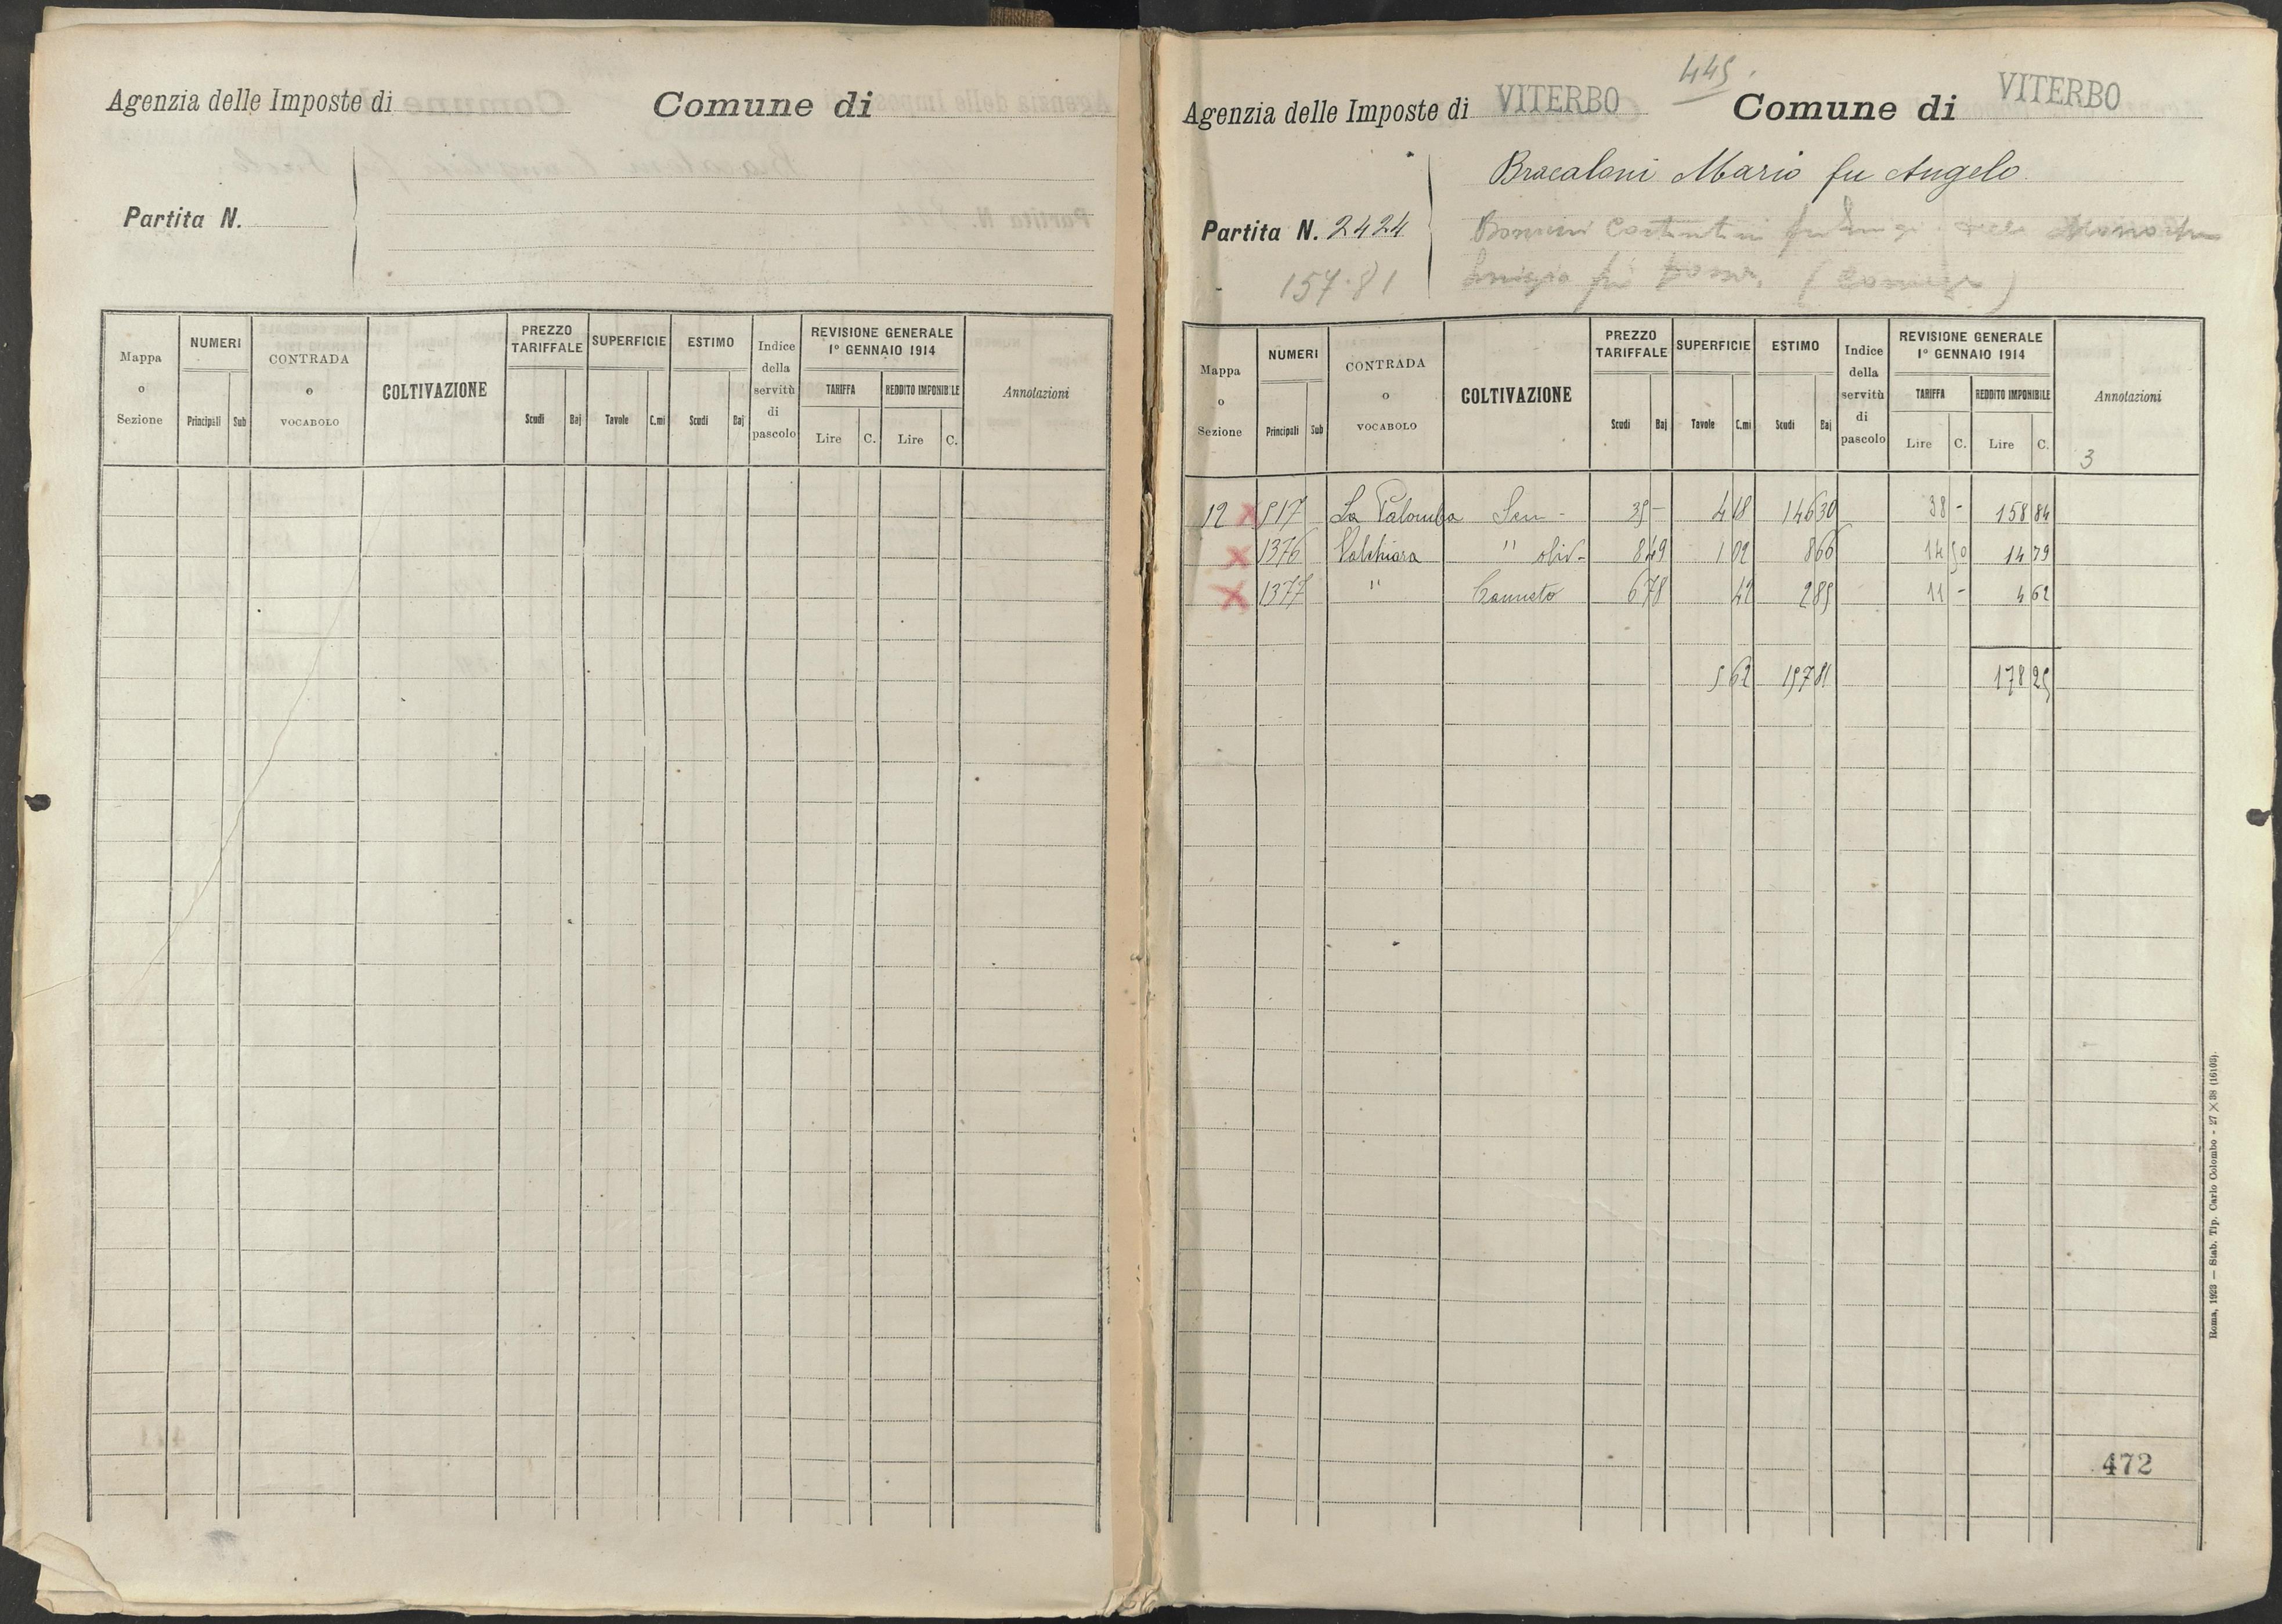 Agenzia delle Imposte di
Comune di
Partita N.
Mappa o Sezione
NUMERI
Principali
Sub
CONTRADA o VOCABOLO
COLTIVAZIONE
PREZZO TARIFFALE
Scudi
Baj
SUPERFICIE
Tavole
C.mi
ESTIMO
Scudi
Baj
Indice della servitù di pascolo
REVISIONE GENERALE
1° GENNAIO 1914
TARIFFA
REDDITO IMPONIBILE
Lire
C.
Lire
C.
Annotazioni
445.
Agenzia delle Imposte di VITERBO
Comune di VITERBO
Bracaloni Mario fu Angelo.
Partita N. 2424
157.81
Mappa o Sezione
NUMERI
Principali
Sub
CONTRADA o VOCABOLO
COLTIVAZIONE
PREZZO TARIFFALE
Scudi
Baj
SUPERFICIE
Tavole
C.mi
ESTIMO
Scudi
Baj
Indice della servitù di pascolo
REVISIONE GENERALE
1° GENNAIO 1914
TARIFFA
REDDITO IMPONIBILE
Lire
C.
Lire
C.
Annotazioni
3
12 x 517 La Palomba Sem - 35 - 4 18 146 30 38 - 158 84
x 1376 Valchiara " oliv- 8 49 1 02 8 66 14 50 14 79
x 1377 " Canneto 6 78 42 2 85 11 - 4 62
5 62 157 81 178 25
472
Roma, 1923 — Stab. Tip. Carlo Colombo - 27 X 38 (16103).